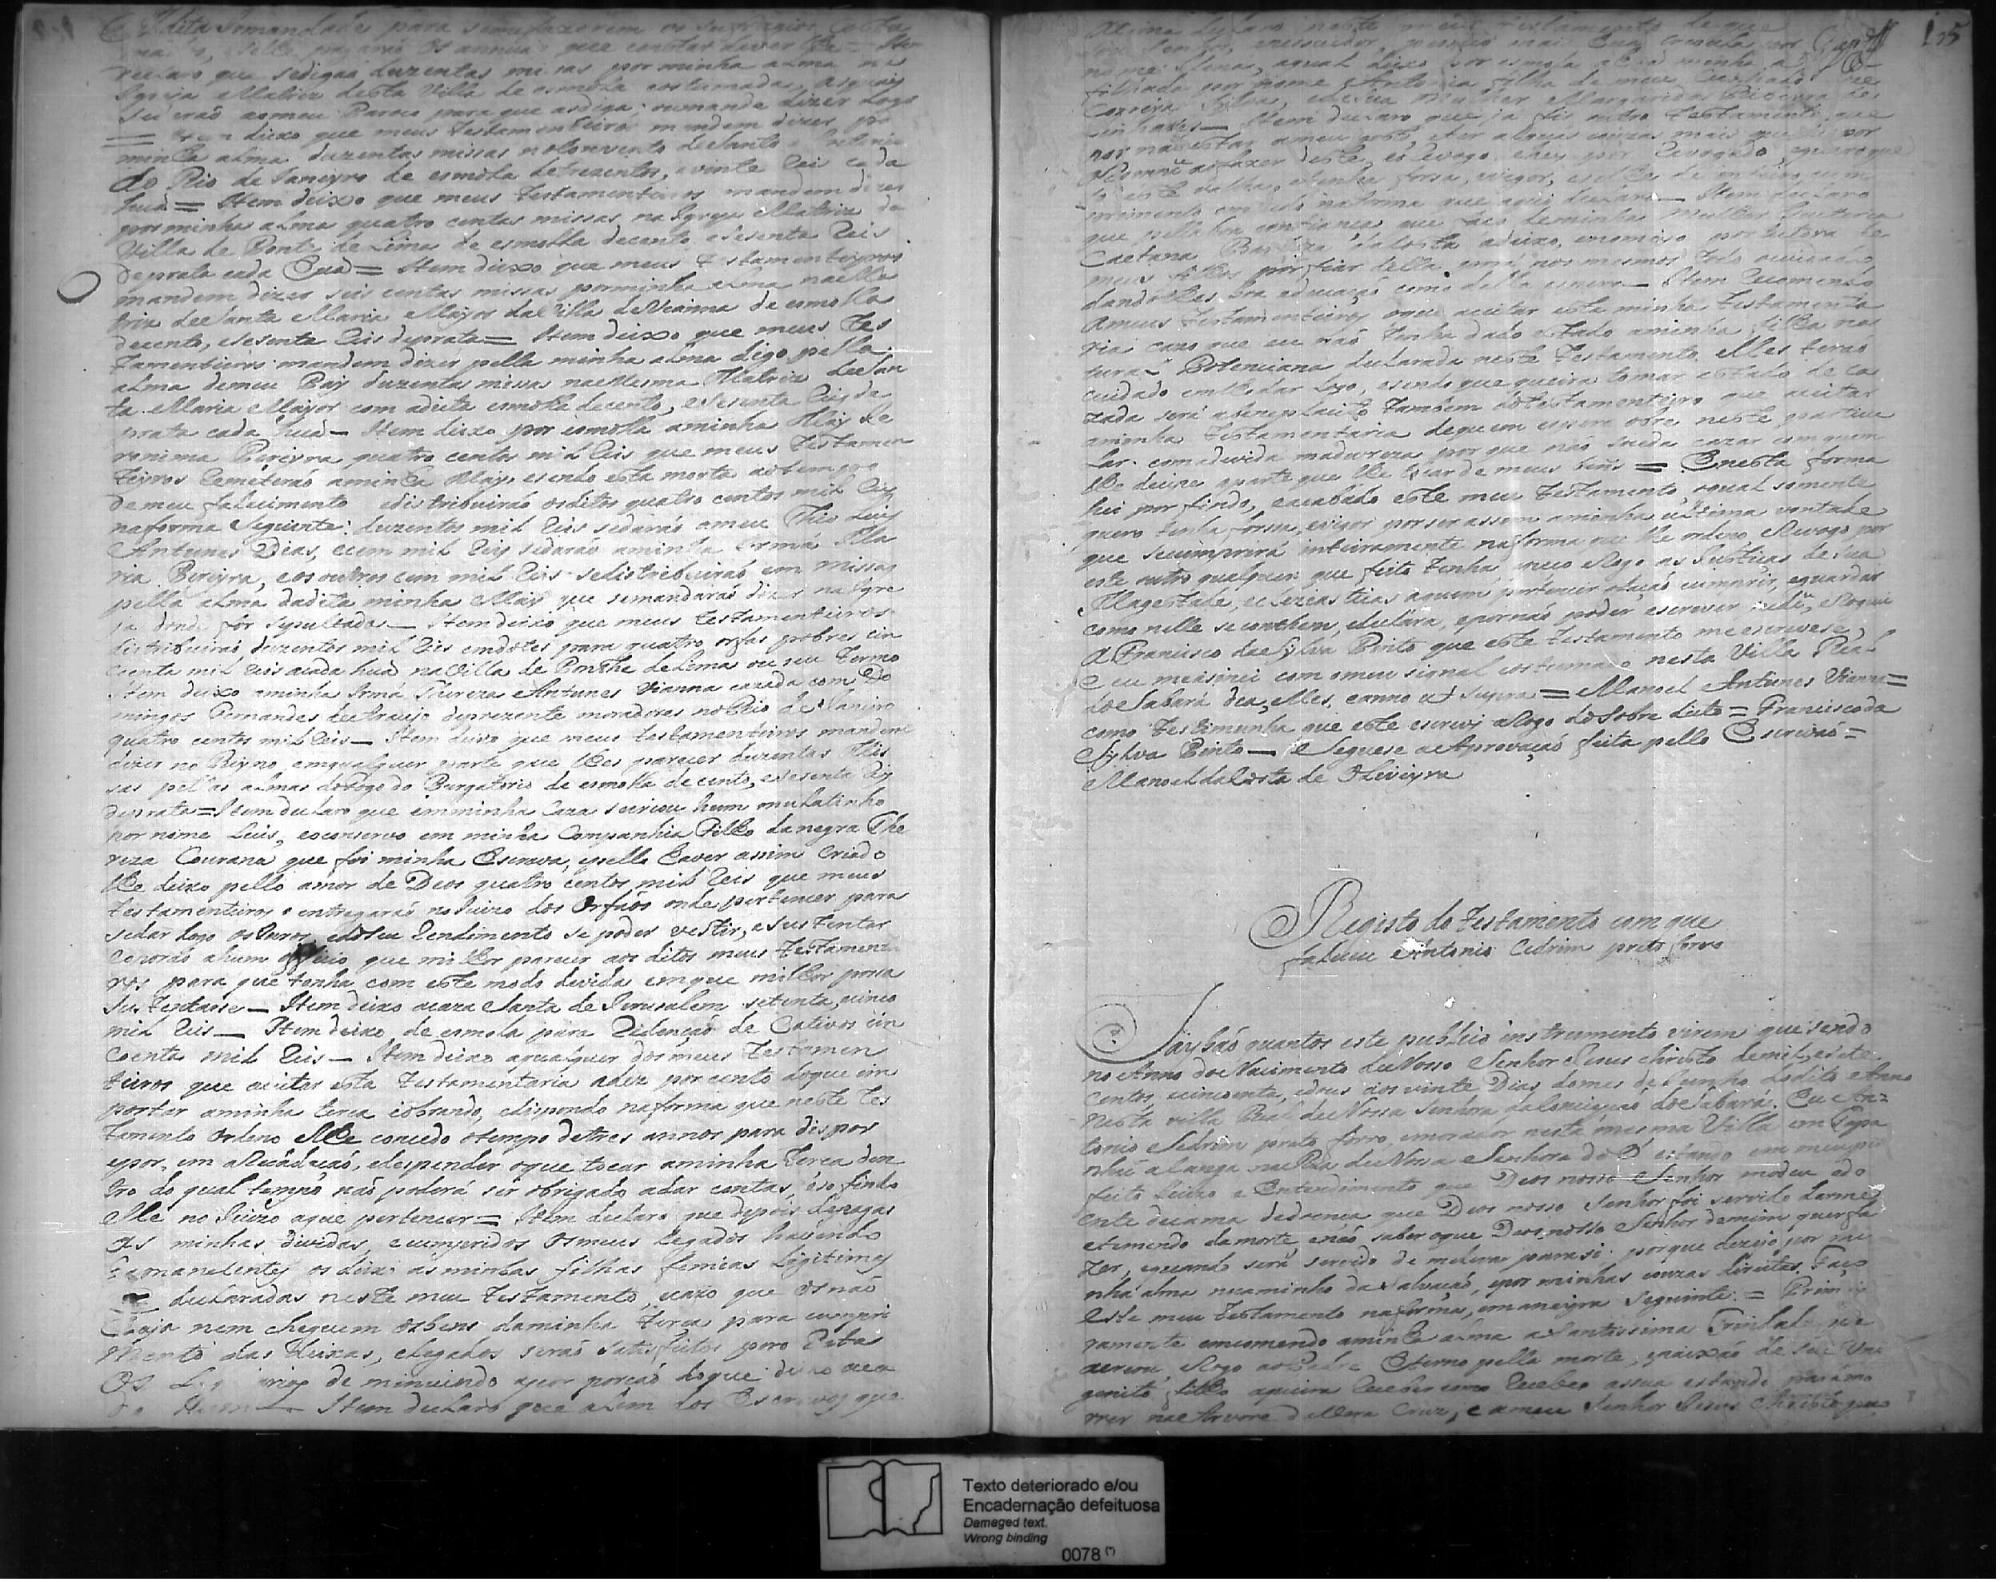 dita Irmandade para se me fazerem os sufragios
declaro que se digaõ duzentas missas por minha alma na
Igreja Matriz desta Villa de esmola costumada, as quais
meu Paroco para que as diga, ou mande dizer logo
= Item deixo que meus Testamenteiros mandem dizer por
minha alma duzentas missas no Convento de Santo Antonio
do Rio de Janeyro de esmola de trezentos, e vinte Reis cada
huã = Item deixo que meus Testamenteiros mandem dizer
por minha alma quatro centas missas, na Igreja Matriz da
Villa de Ponte de Lima de esmolla de cento, e sesenta Reis
de prata cada huã = Item deixo que meus Testamenteyros
mandem dizer seis centas missas por minha alma na Ma
triz de Santa Maria Mayor da Villa de Vianna de esmolla
de cento, e sesenta Reis de prata = Item deixo que meus Tes
tamenteiros mandem dizer pella minha alma digo pella
alma de meu Pay duzentas missas na mesma Matriz de San
ta Maria Mayor com a dita esmola de cento, e sesenta Reis de
prata cada huã — Item deixo por esmolla a minha May Je
ronima Pereyra quatro centos mil Reis que meus Testamen
teyros Remeteraõ a minha May, e sendo esta morta ao tempo
de meu falecimento distribuiraõ os ditos quatro centos mil Reis
na forma seguinte: duzentos mil Reis se daraõ a meu Thio Luis
Antunes Dias, e cem mil Reis se daraõ a minha Irmã Ma
ria Pereyra, e os outros cem mil Reis se distribuiraõ em missas
pella alma da dita minha May que se mandaraõ dizer na Igre
ja donde for sepultada — Item deixo que meus testamenteiros
distribuiraõ duzentos mil Reis em dotes para quatro orfãs pobres cin
coenta mil Reis a cada huã na Villa de Ponthe de Lima ou seu Termo
Item deixo a minha Irmã Antunes Vianna cazada com Do
mingos Fernandes de Araujo de prezente moradores no Rio de Janeiro
quatro centos mil Reis — Item deixo que meus testamenteiros mandem
dizer no Reyno, em qualquer parte que lhes parecer duzentas Mis
sas pellas almas do Fogo do Purgatorio de esmolla de cento, e sesenta Reis
de prata = Item declaro que em minha Caza se criou hum mulatinho
por nome Luis, e o conservo em minha Companhia Filho da negra The
reza Courana que foi minha Escrava, e pello haver assim criado
lhe deixo pello amor de Deos quatro centos mil Reis que meus
testamenteiros entregaraõ no Juizo dos Orfaõs onde pertencer para
se dar logo os juros, e do seu Rendimento se poder vestir, e sustentar
a hum que milhor parecer aos ditos meus Testamentei
ros para que tenha com este modo de vida em que milhor possa
sustentarse — Item deixo a caza Santa de Jerusalem setenta, e cinco
mil Reis — Item deixo de esmola para Redençaõ de Cativos cin
coenta mil Reis — Item deixo a qualquer dos meus Testamen
teiros que aceitar esta Testamentaria a dez por cento do que im
portar a minha terça cobrando, e dispondo na forma que neste Tes
tamento ordeno e lhe concedo o tempo de tres annos para dispor
e por em aRecadaçaõ, e despender o que tocar a minha Terça den
tro do qual tempo naõ poderá ser obrigado a dar contas, e só findo
elle no Juizo a que pertencer = Item declaro que depois de pagas
as minhas dividas, e cumpridos os meus legados havendo
Remanecentes os deixo as minhas filhas femeas Ligitimas
declaradas neste meu Testamento, e cazo que os naõ
haja nem cheguem os bens da minha terça para cumpri
mento das deixas, e legados seraõ satisfeitos pro Rata
os de menuendo a cor porçaõ do que deixo a ca
Item declaro que alem dos Escravos que
acima declaro neste meu Testamento de que
sou Senhor, e possuidor, possuo mais huã crioula por
nome Elena, a qual deixo por esmola a huã minha a
filhada por nome Antonia filha de meu Cunhado
Correya Silva, e de sua Mulher Margarida Pereyra de
Item declaro que ja fis outro Testamento, que
por naõ estar a meu gosto, e ter alguas couzas mais que dispor
a fazer este, e o Revogo, e hey por Revogado, e quero que
só este valha, e tenha força, e vigor, e se lhe dê inteiro cum
primento em tudo na forma que aqui declaro — Item declaro
que pella boa confiança que faço de minha Mulher
Caetana Barboza da Costa a deixo, e nomeio por tutora de
meus filhos por fiar della que nos mesmos todo o cuidado
dandolhes boa educaçaõ como della espero — Item Recomendo
a meus Testamenteiros o que aceitar esta minha Testamenta
ria cazo que eu naõ tenha dado estado a minha filha na
tural Potenciana declarada neste Testamento elles teraõ
cuidado em lho dar Logo, e sendo que queira tomar estado de ca
zada será a beneplacito tambem do testamenteyro que aceitar
a minha Testamentaria de quem espero obre neste particu
lar com a devida madureza por que naõ suceda cazar com quem
lhe deixe a parte que lhe tocar de meus bens = E nesta forma
hei por findo, e acabado este meu Testamento, o qual somente
quero tenha força, e vigor por ser assim a minha ultima vontade
que se cumprirá inteiramente na forma que lhe ordeno, e Revogo por
este outro qualquer que feito tenha, e Rogo as Justiças de Sua
Magestade, e Eclesiasticas a quem pertencer o façaõ cumprir, e guardar
como nelle se conthem, e declára, e por naõ poder escrever pedi, e Roguei
a Francisco da Sylva Pinto que este Testamento me escrevese,
e eu me asinei com o meu signal costumado nesta Villa Real
do Sabará dia, e Mes, e anno ut supra = Manoel Antunes Vianna =
como Testemunha que este escrevi a Rogo do Sobre dito = Francisco da
Sylva Pinto — e Seguese a Aprovaçaõ feita pello Escrivaõ =
Manoel da Costa de Oliveyra
Registo do Testamento com que
faleceu Antonio Cedrim preto forro
Saibaõ quantos este publico instrumento virem que sendo
no Anno do Nacimento de Nosso Senhor Jesus Christo de mil, e sete
centos, e cincoenta, e dous aos vinte Dias do mes de Junho do dito Anno
Nesta villa Real de Nossa Senhora da Conceiçaõ do Sabará. Eu An=
tonio Sedrim preto forro, e morador nesta mesma Villa em Tapa
nhú a Canga na Rua de Nossa Senhora do Ó estando em meu per
feito Juizo e Entendimento que Deos nosso Senhor me deu e do
ente de cama de doença que Deos nosso Senhor foi servido darme,
e temendo da morte, e naõ saber o que Deos nosso Senhor de mim quer fa
zer, e quando será servido de me levar para si. por que dezejo por mi
nha alma no caminho da Salvaçaõ, e por minhas couzas direitas, Faço
este meu Testamento na forma, e maneyra seguinte. = Primei
ramente encomendo a minha alma a Santissima Trindade que
a creou, e Rogo ao Padre Eterno pella morte, e paixaõ de seu Uni
genito filho a queira Receber como Recebeo a sua estando para mo
rrer na Arvore da Vera Cruz, e a meu Senhor Jesus Christo que
Texto deteriorado e/ou
Encadernação defeituosa
Damaged text.
Wrong binding
0078 (*)